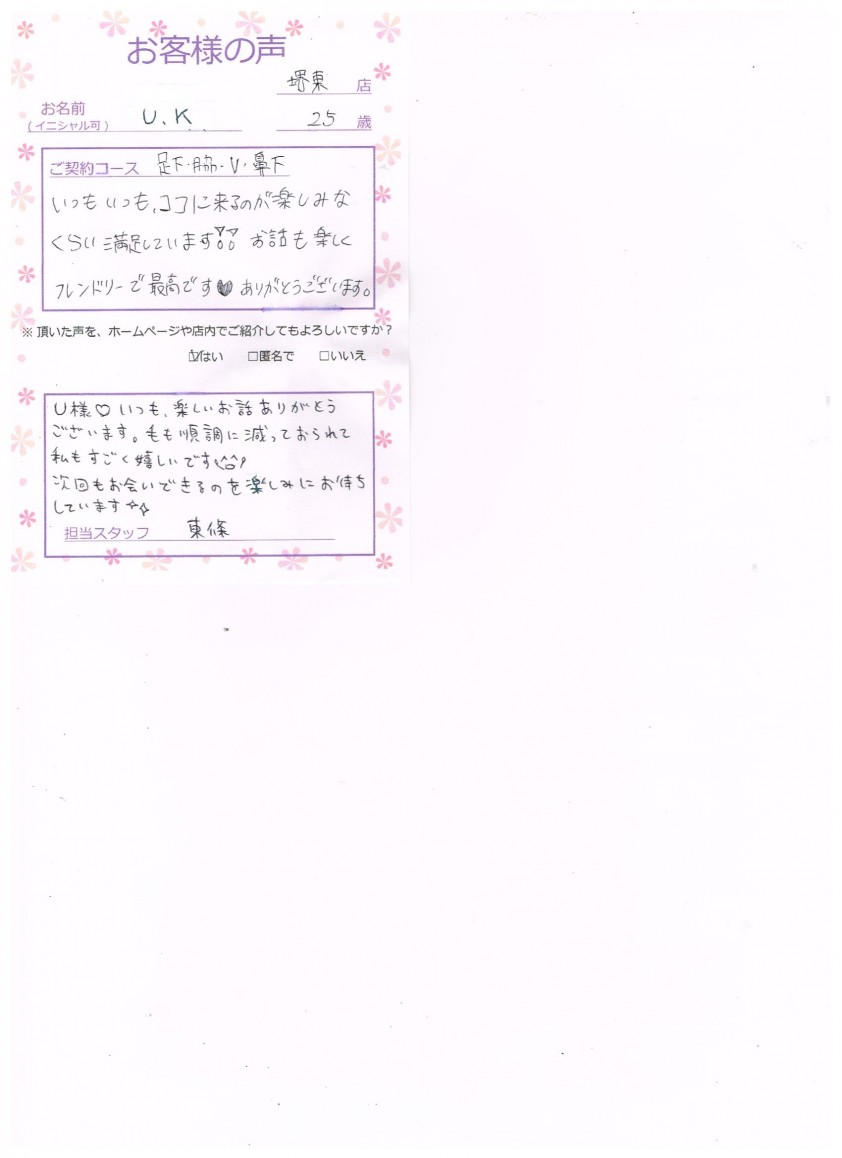 お客様の声
堺東 店
お名前
(イニシャル可) U.K 25 歳
ご契約コース 足下・脇・V・鼻下
いつもいつも、ココに来るのが楽しみな
くらい満足しています!! お話も楽しく
フレンドリーで最高です♥ ありがとうございます。
※頂いた声を、ホームページや店内でご紹介してもよろしいですか？
☑はい □匿名で □いいえ
U様♡いつも、楽しいお話ありがとう
ございます。毛も順調に減っておられて
私もすごく嬉しいです^^
次回もお会いできるのを楽しみにお待ち
しています☆☆
担当スタッフ 東條